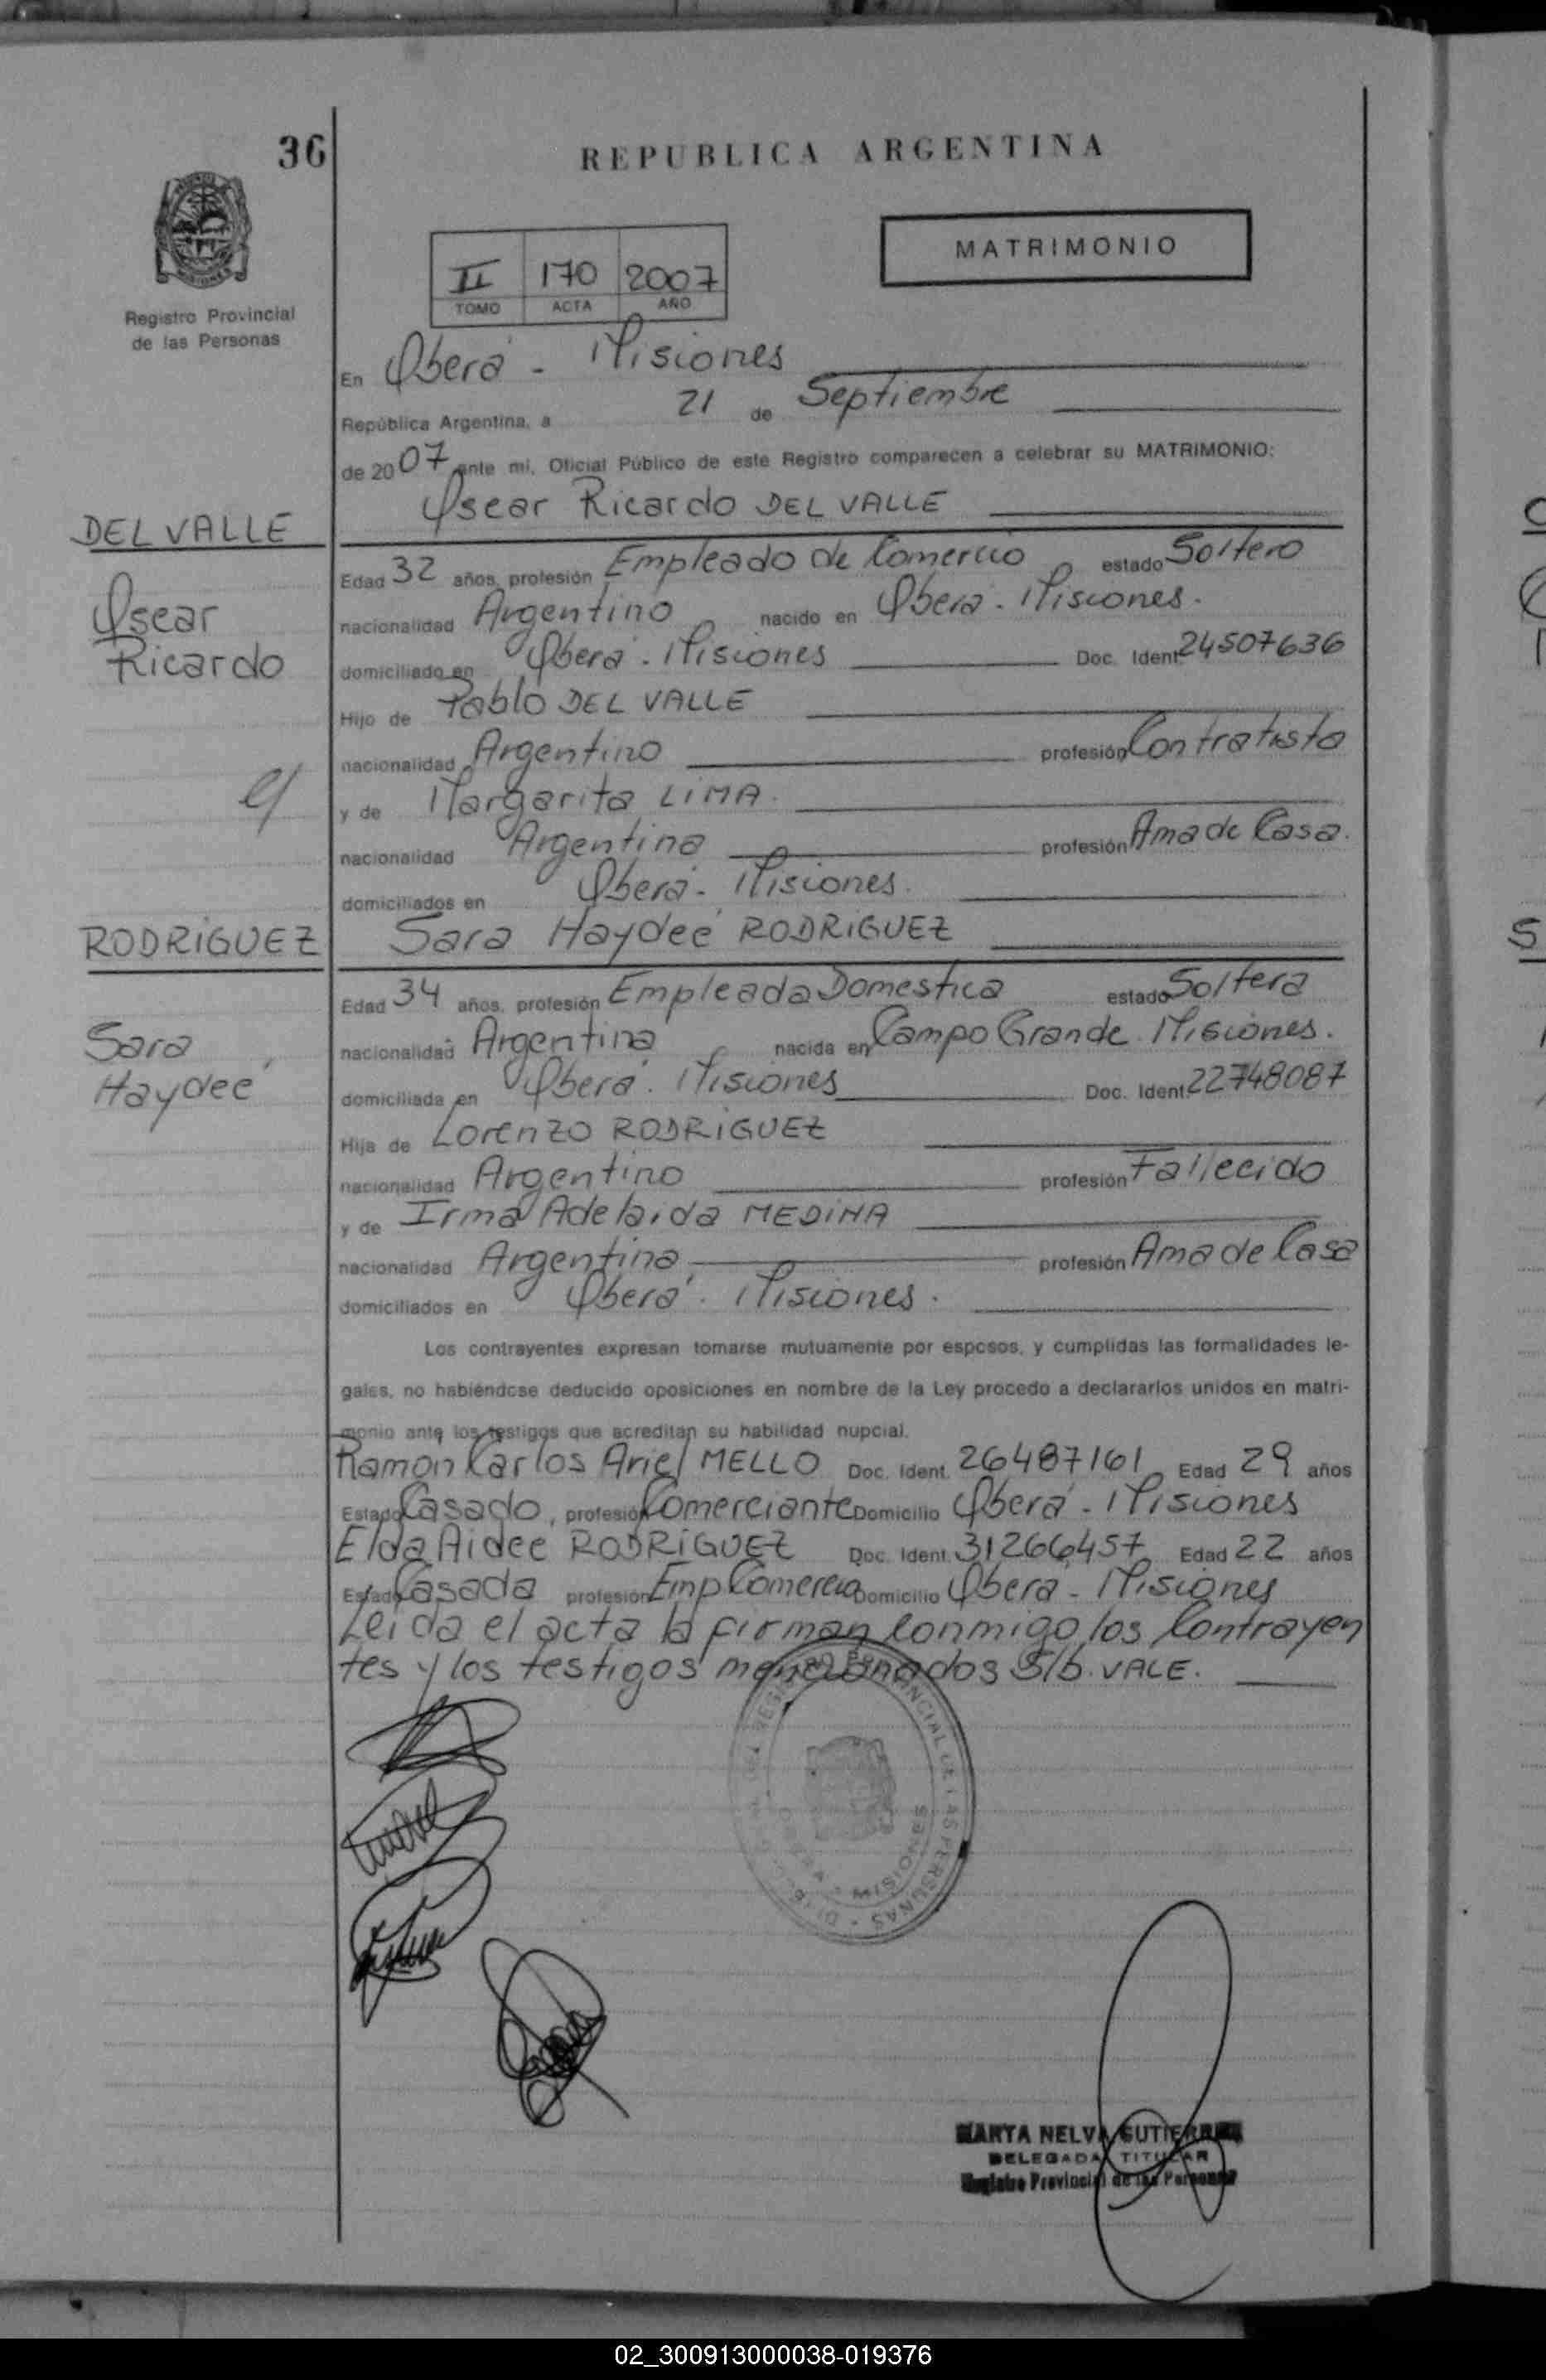 36
REPUBLICA ARGENTINA
MATRIMONIO
II 170 2007
TOMO ACTA AÑO
Registro Provincial
de las Personas
En Oberá - Misiones
República Argentina, a 21 de Septiembre
de 2007 ante mi, Oficial Público de este Registro comparecen a celebrar su MATRIMONIO:
Oscar Ricardo DEL VALLE
DEL VALLE
Oscar
Ricardo
Edad 32 años, profesión Empleado de Comercio estado Soltero
nacionalidad Argentino nacido en Oberá - Misiones.
domiciliado en Oberá - Misiones Doc. Ident. 24507636
Hijo de Pablo DEL VALLE
nacionalidad Argentino profesión Contratista
y de Margarita LIMA
nacionalidad Argentina profesión Ama de Casa.
domiciliados en Oberá - Misiones.
Sara Haydeé RODRIGUEZ
RODRIGUEZ
Sara
Haydeé
Edad 34 años, profesión Empleada Domestica estado Soltera
nacionalidad Argentina nacida en Campo Grande. Misiones.
domiciliada en Oberá. Misiones Doc. Ident. 22748087
Hija de Lorenzo RODRIGUEZ
nacionalidad Argentino profesión Fallecido
y de Irma Adelaida MEDINA
nacionalidad Argentina profesión Ama de Casa
domiciliados en Oberá. Misiones.
Los contrayentes expresan tomarse mutuamente por esposos, y cumplidas las formalidades le-
gales, no habiéndose deducido oposiciones en nombre de la Ley procedo a declararlos unidos en matri-
monio ante los testigos que acreditan su habilidad nupcial.
Ramon Carlos Ariel MELLO Doc. Ident. 26487161 Edad 29 años
Estado Casado, profesión Comerciante Domicilio Oberá - Misiones
Elda Aidee RODRIGUEZ Doc. Ident. 31266457 Edad 22 años
Estado Casada profesión Emp Comercio Domicilio Oberá - Misiones
Leida el acta la firman conmigo los Contrayen
tes y los testigos mencionados S/b. VALE.
REGISTRO PROVINCIAL DE LAS PERSONAS
MISIONES
MARTA NELVA GUTIERREZ
DELEGADA TITULAR
Registro Provincial de las Personas
02_300913000038-019376